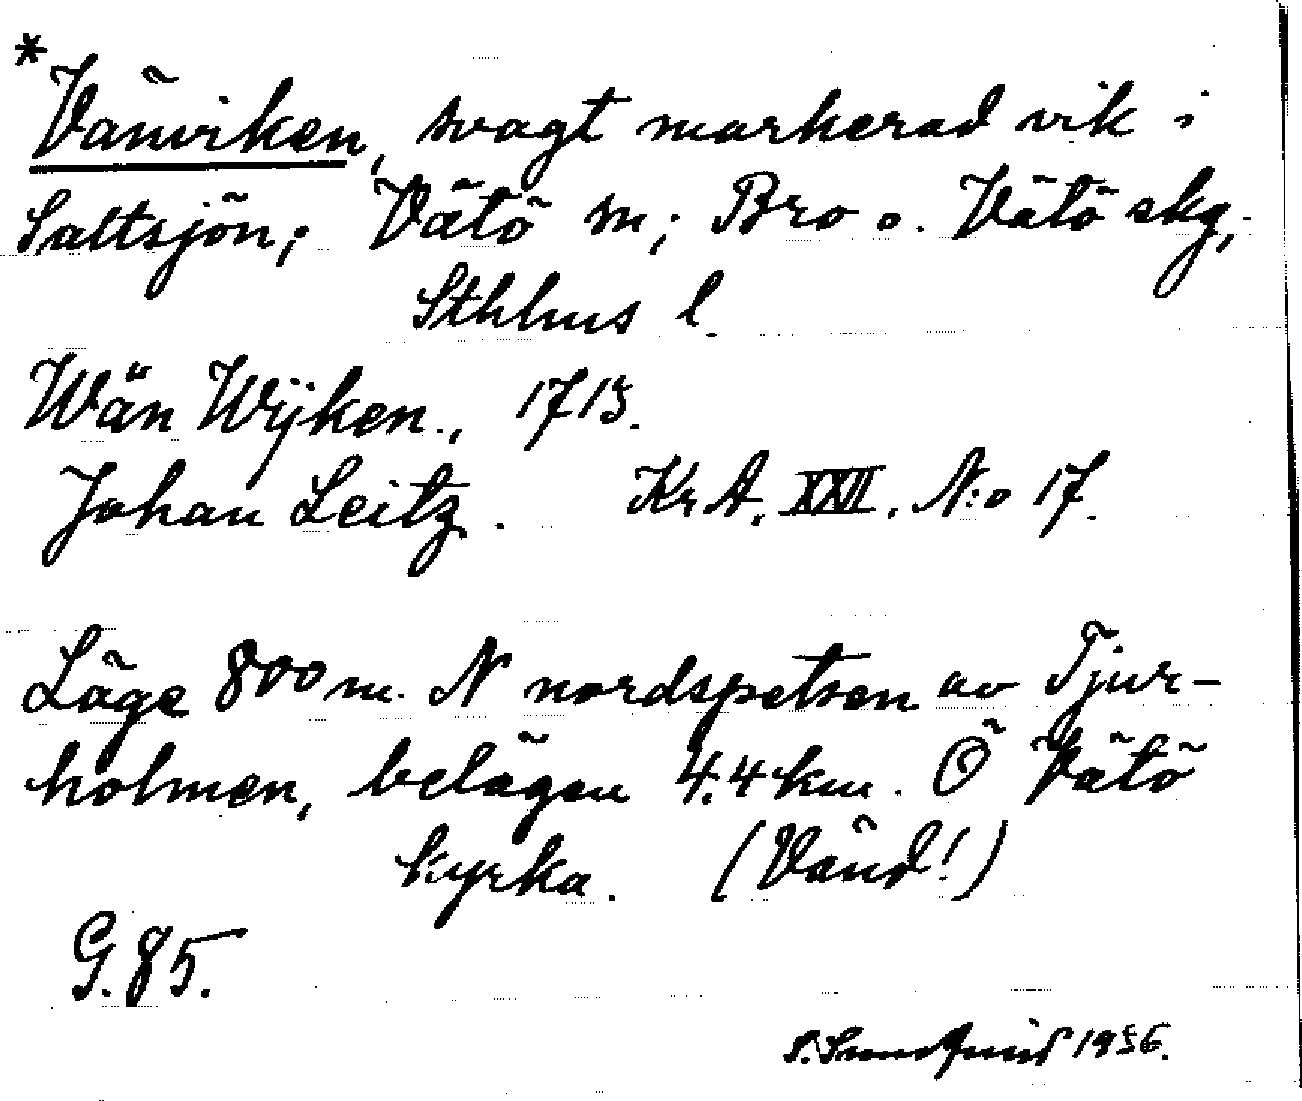 *
Vänviken, svagt markerad vik i
Saltsjön; Vätö sn; Bro o. Vätö skg,
Sthlms l.
Wän Wijken., 1715.
Johan Leitz. Kr A. XXII. N:o 17.
Läge 800 m. N nordspetsen av Tjur-
holmen, belägen 4.4 km. Ö Vätö
kyrka. (Vänd!)
G. 85.
S. Sundquist 1956.